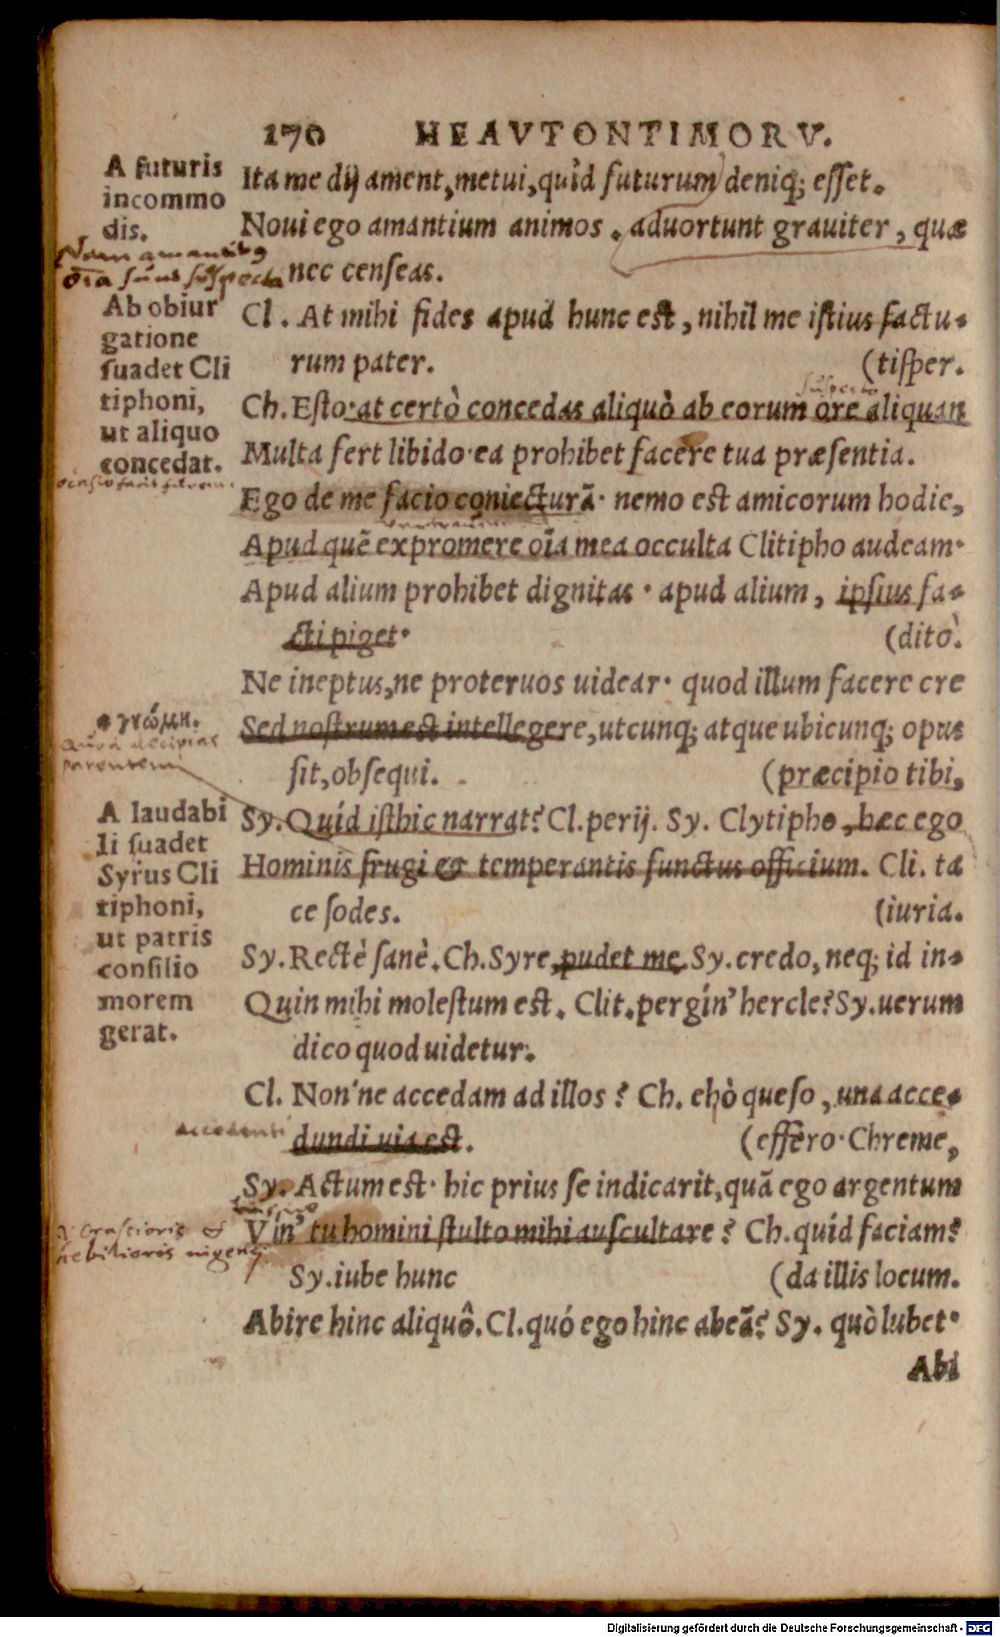 170 HEAVTONTIMORV.
A futuris
incommo
dis.
Nam amantibꝰ
oīa sunt suspecta
Ab obiur
gatione
suadet Cli
tiphoni,
ut aliquo
concedat.
* γνώμη.
parentem
A laudabi
li suadet
Syrus Cli
tiphoni,
ut patris
consilio
morem
gerat.
Ita me dij ament, metui, quid futurum deniq; esset.
Noui ego amantium animos. aduortunt grauiter, quæ
nec censeas.
Cl. At mihi fides apud hunc est, nihil me istius factu-
rum pater. (tisper.
suspecto
Ch. Esto: at certò concedas aliquò ab eorum ore aliquan
Multa fert libido. ea prohibet facere tua præsentia.
Ego de me facio coniecturā. nemo est amicorum hodie,
Apud quē expromere oīa mea occulta Clitipho audeam.
Apud alium prohibet dignitas. apud alium, ipsius fa-
cti piget. (ditò.
Ne ineptus, ne proteruos uidear. quod illum facere cre
Sed nostrum est intellegere, utcunq; atque ubicunq; opus
sit, obsequi. (præcipio tibi,
Sy. Quíd isthic narrat? Cl. perij. Sy. Clytipho, hæc ego
Hominis frugi & temperantis functus officium. Cli. ta
ce sodes. (iuria.
Sy. Rectè sanè. Ch. Syre, pudet me. Sy. credo, neq; id in-
Quin mihi molestum est. Clit. pergín' hercle? Sy. uerum
dico quod uidetur.
Cl. Non'ne accedam ad illos? Ch. ehò queso, una acce-
dundi uia est. (effero. Chreme,
Sy. Actum est. hic prius se indicarit, quā ego argentum
Vín' tu homini stulto mihi auscultare? Ch. quíd faciam?
Sy. iube hunc (da illis locum.
Abire hinc aliquô. Cl. quó ego hinc abeā? Sy. quò lubet.
Abi
accedendi
crassioris et
hebitioris
Digitalisierung gefördert durch die Deutsche Forschungsgemeinschaft - DFG